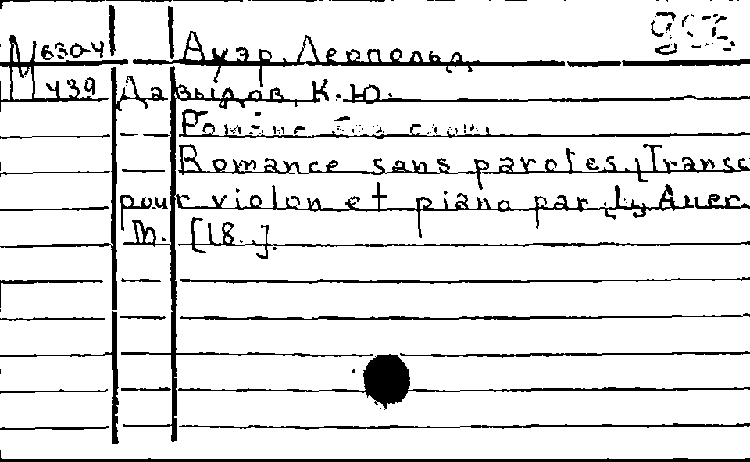 М 630-4 Ауэр, Леопольд
439 Давыдов, К.Ю.
Романс без слов.
Romance sans paroles. [Transc
pour violon et piano par L. Auer.
М. [18..].